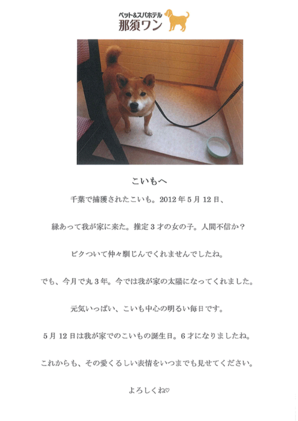 ペット&スパホテル
那須ワン
こいもへ
千葉で捕獲されたこいも。2012年5月12日、
縁あって我が家に来た。推定3才の女の子。人間不信か？
ビクついて仲々馴じんでくれませんでしたね。
でも、今月で丸3年。今では我が家の太陽になってくれました。
元気いっぱい、こいも中心の明るい毎日です。
5月12日は我が家でのこいもの誕生日。6才になりましたね。
これからも、その愛くるしい表情をいつまでも見せてください。
よろしくね♡